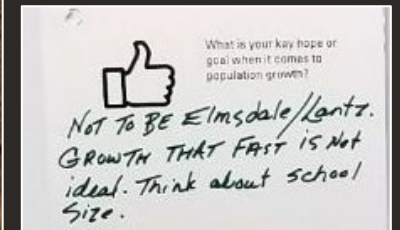 What is your key hope or
goal when it comes to
population growth?
NOT TO BE Elmsdale/Lantz.
GROWTH THAT FAST is Not
ideal. Think about school
Size.